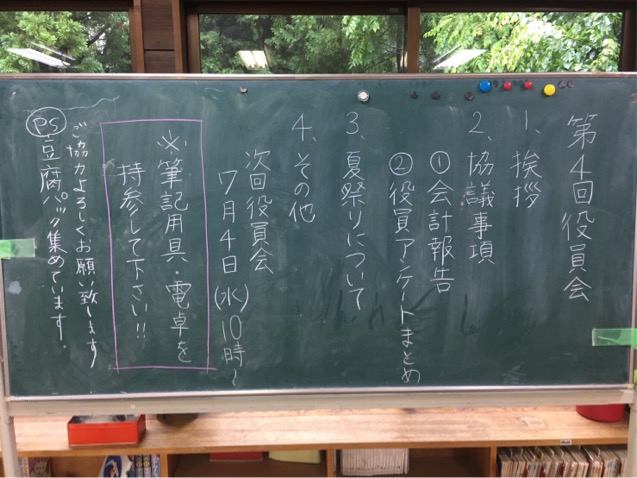 第4回役員会
1、挨拶
2、協議事項
①会計報告
②役員アンケートまとめ
3、夏祭りについて
4、その他
次回役員会
7月4日(水)10時~
※筆記用具・電卓を
持参して下さい!!
ご協力よろしくお願い致します
PS 豆腐パック集めています。